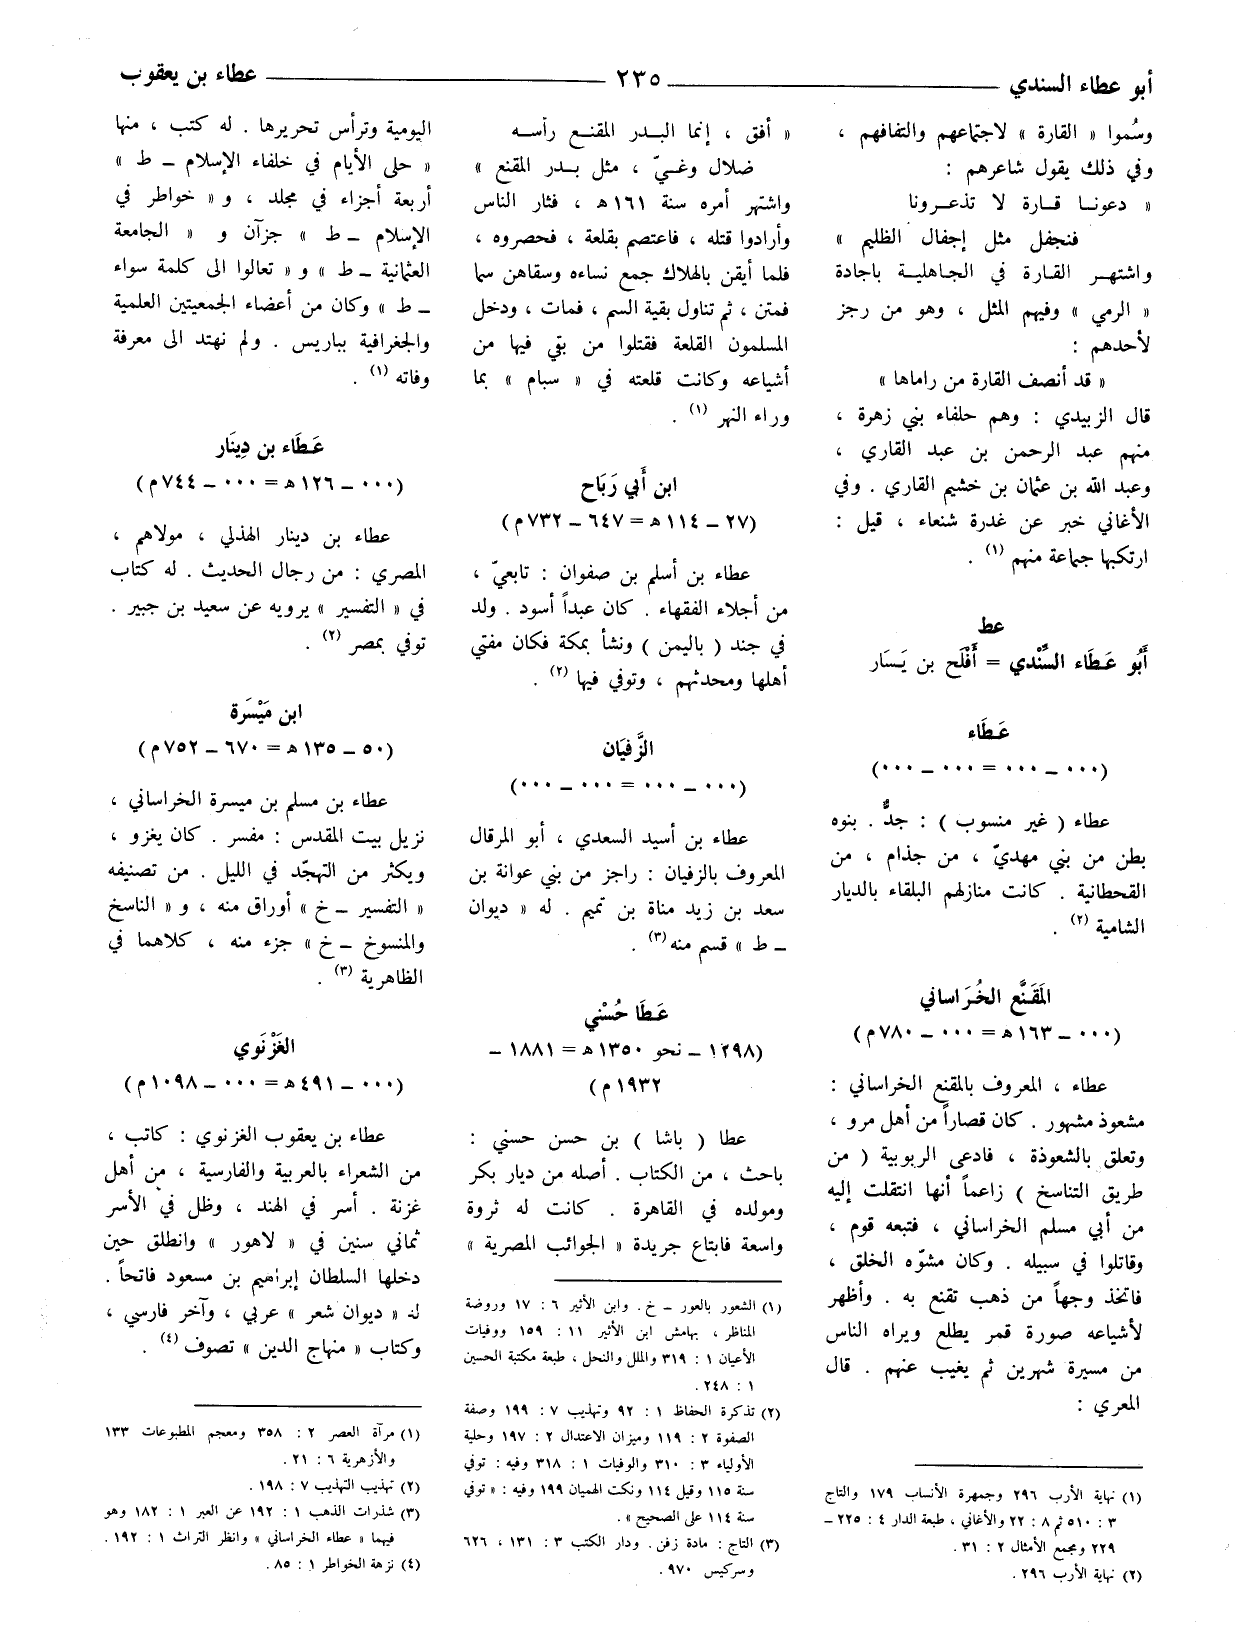 أبو عطاء السندي ٢٣٥ عطاء بن يعقوب
وسُموا « القارة » لاجتماعهم والتفافهم ،
وفي ذلك يقول شاعرهم :
« دعونا قارة لا تذعرونا
فنجفل مثل إجفال الظليم »
واشتهر القارة في الجاهلية باجادة
« الرمي » وفيهم المثل ، وهو من رجز
لأحدهم :
« قد أنصف القارة من راماها »
قال الزبيدي : وهم حلفاء بني زهرة ،
منهم عبد الرحمن بن عبد القاري ،
وعبد الله بن عثمان بن خشيم القاري . وفي
الأغاني خبر عن غدرة شنعاء ، قيل :
ارتكبها جماعة منهم (١) .
عط
أَبُو عَطَاء السِّنْدي = أَفْلَح بن يَسَار
عَطَاء
(٠٠٠ ــ ٠٠٠ = ٠٠٠ ــ ٠٠٠)
عطاء ( غير منسوب ) : جدٌّ . بنوه
بطن من بني مهديّ ، من جذام ، من
القحطانية . كانت منازلهم البلقاء بالديار
الشامية (٢) .
المَقَنَّع الخُرَاساني
(٠٠٠ ــ ١٦٣ ه = ٠٠٠ ــ ٧٨٠ م)
عطاء ، المعروف بالمقنع الخراساني :
مشعوذ مشهور . كان قصاراً من أهل مرو ،
وتعلق بالشعوذة ، فادعى الربوبية ( من
طريق التناسخ ) زاعماً أنها انتقلت إليه
من أبي مسلم الخراساني ، فتبعه قوم ،
وقاتلوا في سبيله . وكان مشوّه الخلق ،
فاتخذ وجهاً من ذهب تقنع به . وأظهر
لأشياعه صورة قمر يطلع ويراه الناس
من مسيرة شهرين ثم يغيب عنهم . قال
المعري :
(١) نهاية الأرب ٢٩٦ وجمهرة الأنساب ١٧٩ والتاج
٣ : ٥١٠ ثم ٨ : ٢٢ والأغاني ، طبعة الدار ٤ : ٢٢٥ ــ
٢٢٩ ومجمع الأمثال ٢ : ٣١ .
(٢) نهاية الأرب ٢٩٦ .
« أفق ، إنما البدر المقنع رأسه
ضلال وغيّ ، مثل بدر المقنع »
واشتهر أمره سنة ١٦١ ه ، فثار الناس
وأرادوا قتله ، فاعتصم بقلعة ، فحصروه ،
فلما أيقن بالهلاك جمع نساءه وسقاهن سما
فمتن ، ثم تناول بقية السم ، فمات ، ودخل
المسلمون القلعة فقتلوا من بقي فيها من
أشياعه وكانت قلعته في « سبام » بما
وراء النهر (١) .
ابن أَبي رَبَاح
(٢٧ ــ ١١٤ ه = ٦٤٧ ــ ٧٣٢ م)
عطاء بن أسلم بن صفوان : تابعيّ ،
من أجلاء الفقهاء . كان عبداً أسود . ولد
في جند ( باليمن ) ونشأ بمكة فكان مفتي
أهلها ومحدثهم ، وتوفي فيها (٢) .
الزَّفيَان
(٠٠٠ ــ ٠٠٠ = ٠٠٠ ــ ٠٠٠)
عطاء بن أسيد السعدي ، أبو المرقال
المعروف بالزفيان : راجز من بني عوانة بن
سعد بن زيد مناة بن تميم . له « ديوان
ــ ط » قسم منه (٣) .
عَطَا حُسْني
(١٢٩٨ ــ نحو ١٣٥٠ ه = ١٨٨١ ــ
١٩٣٢ م)
عطا ( باشا ) بن حسن حسني :
باحث ، من الكتاب . أصله من ديار بكر
ومولده في القاهرة . كانت له ثروة
واسعة فابتاع جريدة « الجوائب المصرية »
(١) الشعور بالعور ــ خ . وابن الأثير ٦ : ١٧ وروضة
المناظر ، بهامش ابن الأثير ١١ : ١٥٩ ووفيات
الأعيان ١ : ٣١٩ والملل والنحل ، طبعة مكتبة الحسين
١ : ٢٤٨ .
(٢) تذكرة الحفاظ ١ : ٩٢ وتهذيب ٧ : ١٩٩ وصفة
الصفوة ٢ : ١١٩ وميزان الاعتدال ٢ : ١٩٧ وحلية
الأولياء ٣ : ٣١٠ والوفيات ١ : ٣١٨ وفيه : توفي
سنة ١١٥ وقيل ١١٤ ونكت الهميان ١٩٩ وفيه : « توفي
سنة ١١٤ على الصحيح » .
(٣) التاج : مادة زفن . ودار الكتب ٣ : ١٣١ ، ٦٢٦
وسركيس ٩٧٠ .
اليومية وترأس تحريرها . له كتب ، منها
« حلى الأيام في خلفاء الإسلام ــ ط »
أربعة أجزاء في مجلد ، و « خواطر في
الإسلام ــ ط » جزآن و « الجامعة
العثمانية ــ ط » و « تعالوا الى كلمة سواء
ــ ط » وكان من أعضاء الجمعيتين العلمية
والجغرافية بباريس . ولم نهتد الى معرفة
وفاته (١) .
عَطَاء بن دِينَار
(٠٠٠ ــ ١٢٦ ه = ٠٠٠ ــ ٧٤٤ م)
عطاء بن دينار الهذلي ، مولاهم ،
المصري : من رجال الحديث . له كتاب
في « التفسير » يرويه عن سعيد بن جبير .
توفي بمصر (٢) .
ابن مَيْسَرة
(٥٠ ــ ١٣٥ ه = ٦٧٠ ــ ٧٥٢ م)
عطاء بن مسلم بن ميسرة الخراساني ،
نزيل بيت المقدس : مفسر . كان يغزو ،
ويكثر من التهجّد في الليل . من تصنيفه
« التفسير ــ خ » أوراق منه ، و « الناسخ
والمنسوخ ــ خ » جزء منه ، كلاهما في
الظاهرية (٣) .
الغَزْنَوي
(٠٠٠ ــ ٤٩١ ه = ٠٠٠ ــ ١٠٩٨ م)
عطاء بن يعقوب الغزنوي : كاتب ،
من الشعراء بالعربية والفارسية ، من أهل
غزنة . أسر في الهند ، وظل في الأسر
ثماني سنين في « لاهور » وانطلق حين
دخلها السلطان إبراهيم بن مسعود فاتحاً .
له « ديوان شعر » عربي ، وآخر فارسي ،
وكتاب « منهاج الدين » تصوف (٤) .
(١) مرآة العصر ٢ : ٣٥٨ ومعجم المطبوعات ١٣٣
والأزهرية ٦ : ٢١ .
(٢) تهذيب التهذيب ٧ : ١٩٨ .
(٣) شذرات الذهب ١ : ١٩٢ عن العبر ١ : ١٨٢ وهو
فيهما « عطاء الخراساني » وانظر التراث ١ : ١٩٢ .
(٤) نزهة الخواطر ١ : ٨٥ .